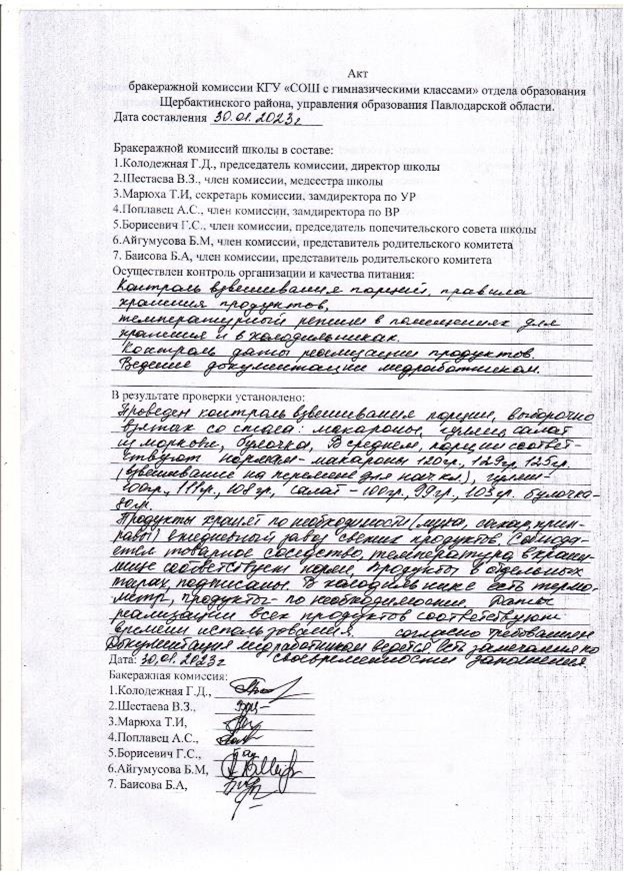 Акт
бракеражной комиссии КГУ «СОШ с гимназическими классами» отдела образования
Щербактинского района, управления образования Павлодарской области.
Дата составления 30.01.2023г
Бракеражной комиссий школы в составе:
1.Колодежная Г.Д., председатель комиссии, директор школы
2.Шестаева В.З., член комиссии, медсестра школы
3.Марюха Т.И, секретарь комиссии, замдиректора по УР
4.Поплавец А.С., член комиссии, замдиректора по ВР
5.Борисевич Г.С., член комиссии, председатель попечительского совета школы
6.Айгумусова Б.М, член комиссии, представитель родительского комитета
7. Баисова Б.А, член комиссии, представитель родительского комитета
Осуществлен контроль организации и качества питания:
Контроль взвешивания порций, правила
хранения продуктов,
температурный режим в помещениях для
хранения и в холодильниках.
Контроль даты реализации продуктов.
Ведение документации медработником.
В результате проверки установлено:
Проведен контроль взвешивания порции, выборочно
взятых со стола: макароны, гуляш, салат
из моркови, булочка, В среднем, порции соответ-
ствуют нормам - макароны 120гр., 129гр, 125гр.
(взвешивание на перемене для нач кл), гуляш-
100гр., 111гр., 108гр, салат - 100гр., 99гр., 103гр. булочка-
80гр.
Продукты хранят по необходимости (мука, сахар, крип-
ежедневный завоз свежих продуктов. Соблюда-
ется товарное соседство, температура в храни-
лище соответствует норме. Продукты в отдельных
тарах, подписаны. В холодильнике есть термо-
метр, продукты - по необходимости. Даты
реализации всех продуктов соответствуют
времени использования. согласно требованиям
Документация медработником ведется, есть замечания по
Дата: 30.01.2023г своевременности заполнения.
Бакеражная комиссия:
1.Колодежная Г.Д.,
2.Шестаева В.З.,
3.Марюха Т.И,
4.Поплавец А.С.,
5.Борисевич Г.С.,
6.Айгумусова Б.М,
7. Баисова Б.А,